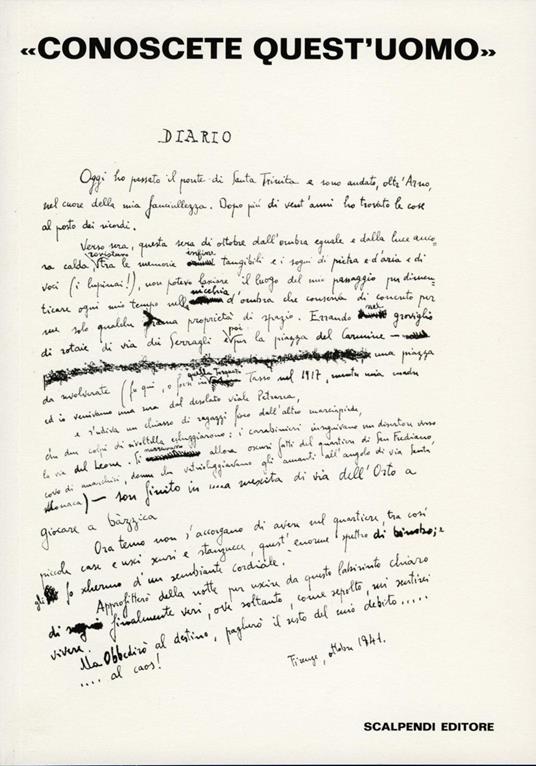 «CONOSCETE QUEST'UOMO»
DIARIO
Oggi ho passato il ponte di Santa Trinita e sono andato, oltr'Arno,
nel cuore della mia fanciullezza. Dopo più di vent'anni ho trovato le cose
al posto dei ricordi.
Verso sera, questa sera di ottobre dall'ombra eguale e dalla luce anco-
rovistare infine
ra calda, tra le memorie tangibili e i sogni di pietra e d'aria e di
voci (i lupinai!), non potevo lasciare il luogo del mio passaggio per dimen-
nicchia
ticare ogni mio tempo nella d'ombra che conserva di concreto per
me solo qualche proprietà di spazio. Errando nel groviglio
di rotaie di via dei Serragli e poi per la piazza del Carmine –
una piazza
quella Torquato
da revolverate (fu qui, o forsi in Tasso nel 1917, mentre mia madre
ed io venivamo una sera dal desolato viale Petrarca,
e s'udiva un chiasso di ragazzi fioco dall'altro marciapiede,
che due colpi di rivoltella echeggiarono: i carabinieri inseguivano un disertore verso
la via del Leone. Si allora oscuri fatti del quartiere di San Frediano,
covo di anarchici, donne che vetrioleggiavano gli amanti all'angolo di via Santa
Monaca) – son finito in una mescita di via dell'Orto a
giocare a bàzzica
Ora temo non s'accorgano di avere nel quartiere, tra così
piccole case e usci scuri e stanguece, quest'enorme spettro di
gli fo schermo d'un sembiante cordiale.
Approfitterò della notte per uscire da questo labirinto chiaro
di finalmente veri, ove soltanto, come sepolto, mi sentirei
vivere.
Ma Obbedirò al destino, pagherò il resto del mio debito.....
.... al caos!
Firenze, ottobre 1941.
SCALPENDI EDITORE